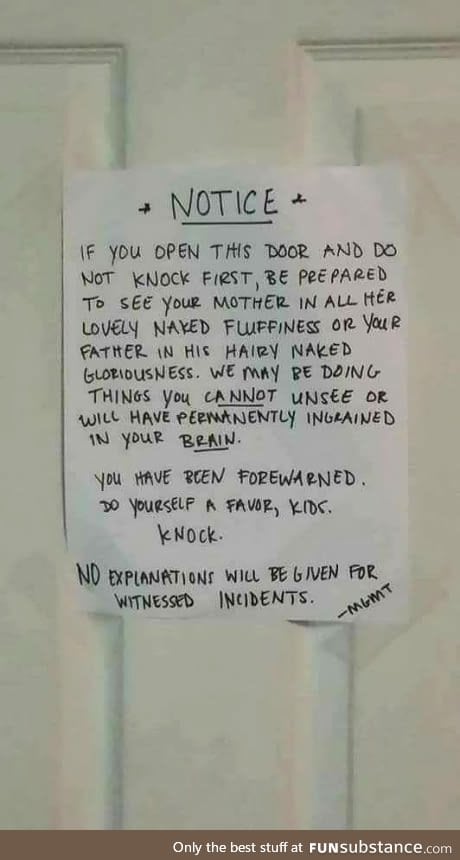 * NOTICE *
IF YOU OPEN THIS DOOR AND DO
NOT KNOCK FIRST, BE PREPARED
TO SEE YOUR MOTHER IN ALL HER
LOVELY NAKED FLUFFINESS OR YOUR
FATHER IN HIS HAIRY NAKED
GLORIOUSNESS. WE MAY BE DOING
THINGS YOU CANNOT UNSEE OR
WILL HAVE PERMANENTLY INGRAINED
IN YOUR BRAIN.
YOU HAVE BEEN FOREWARNED.
DO YOURSELF A FAVOR, KIDS.
KNOCK.
NO EXPLANATIONS WILL BE GIVEN FOR
WITNESSED INCIDENTS.
-MGMT
Only the best stuff at FUNsubstance.com